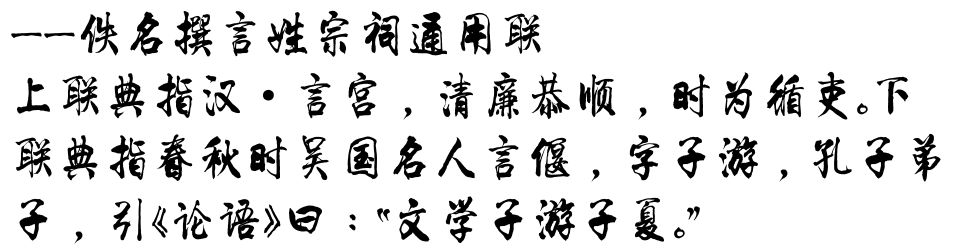 ——佚名撰言姓宗祠通用联
上联典指汉·言宫，清廉恭顺，时为循吏。下
联典指春秋时吴国名人言偃，字子游，孔子弟
子，引《论语》曰：“文学子游子夏。”